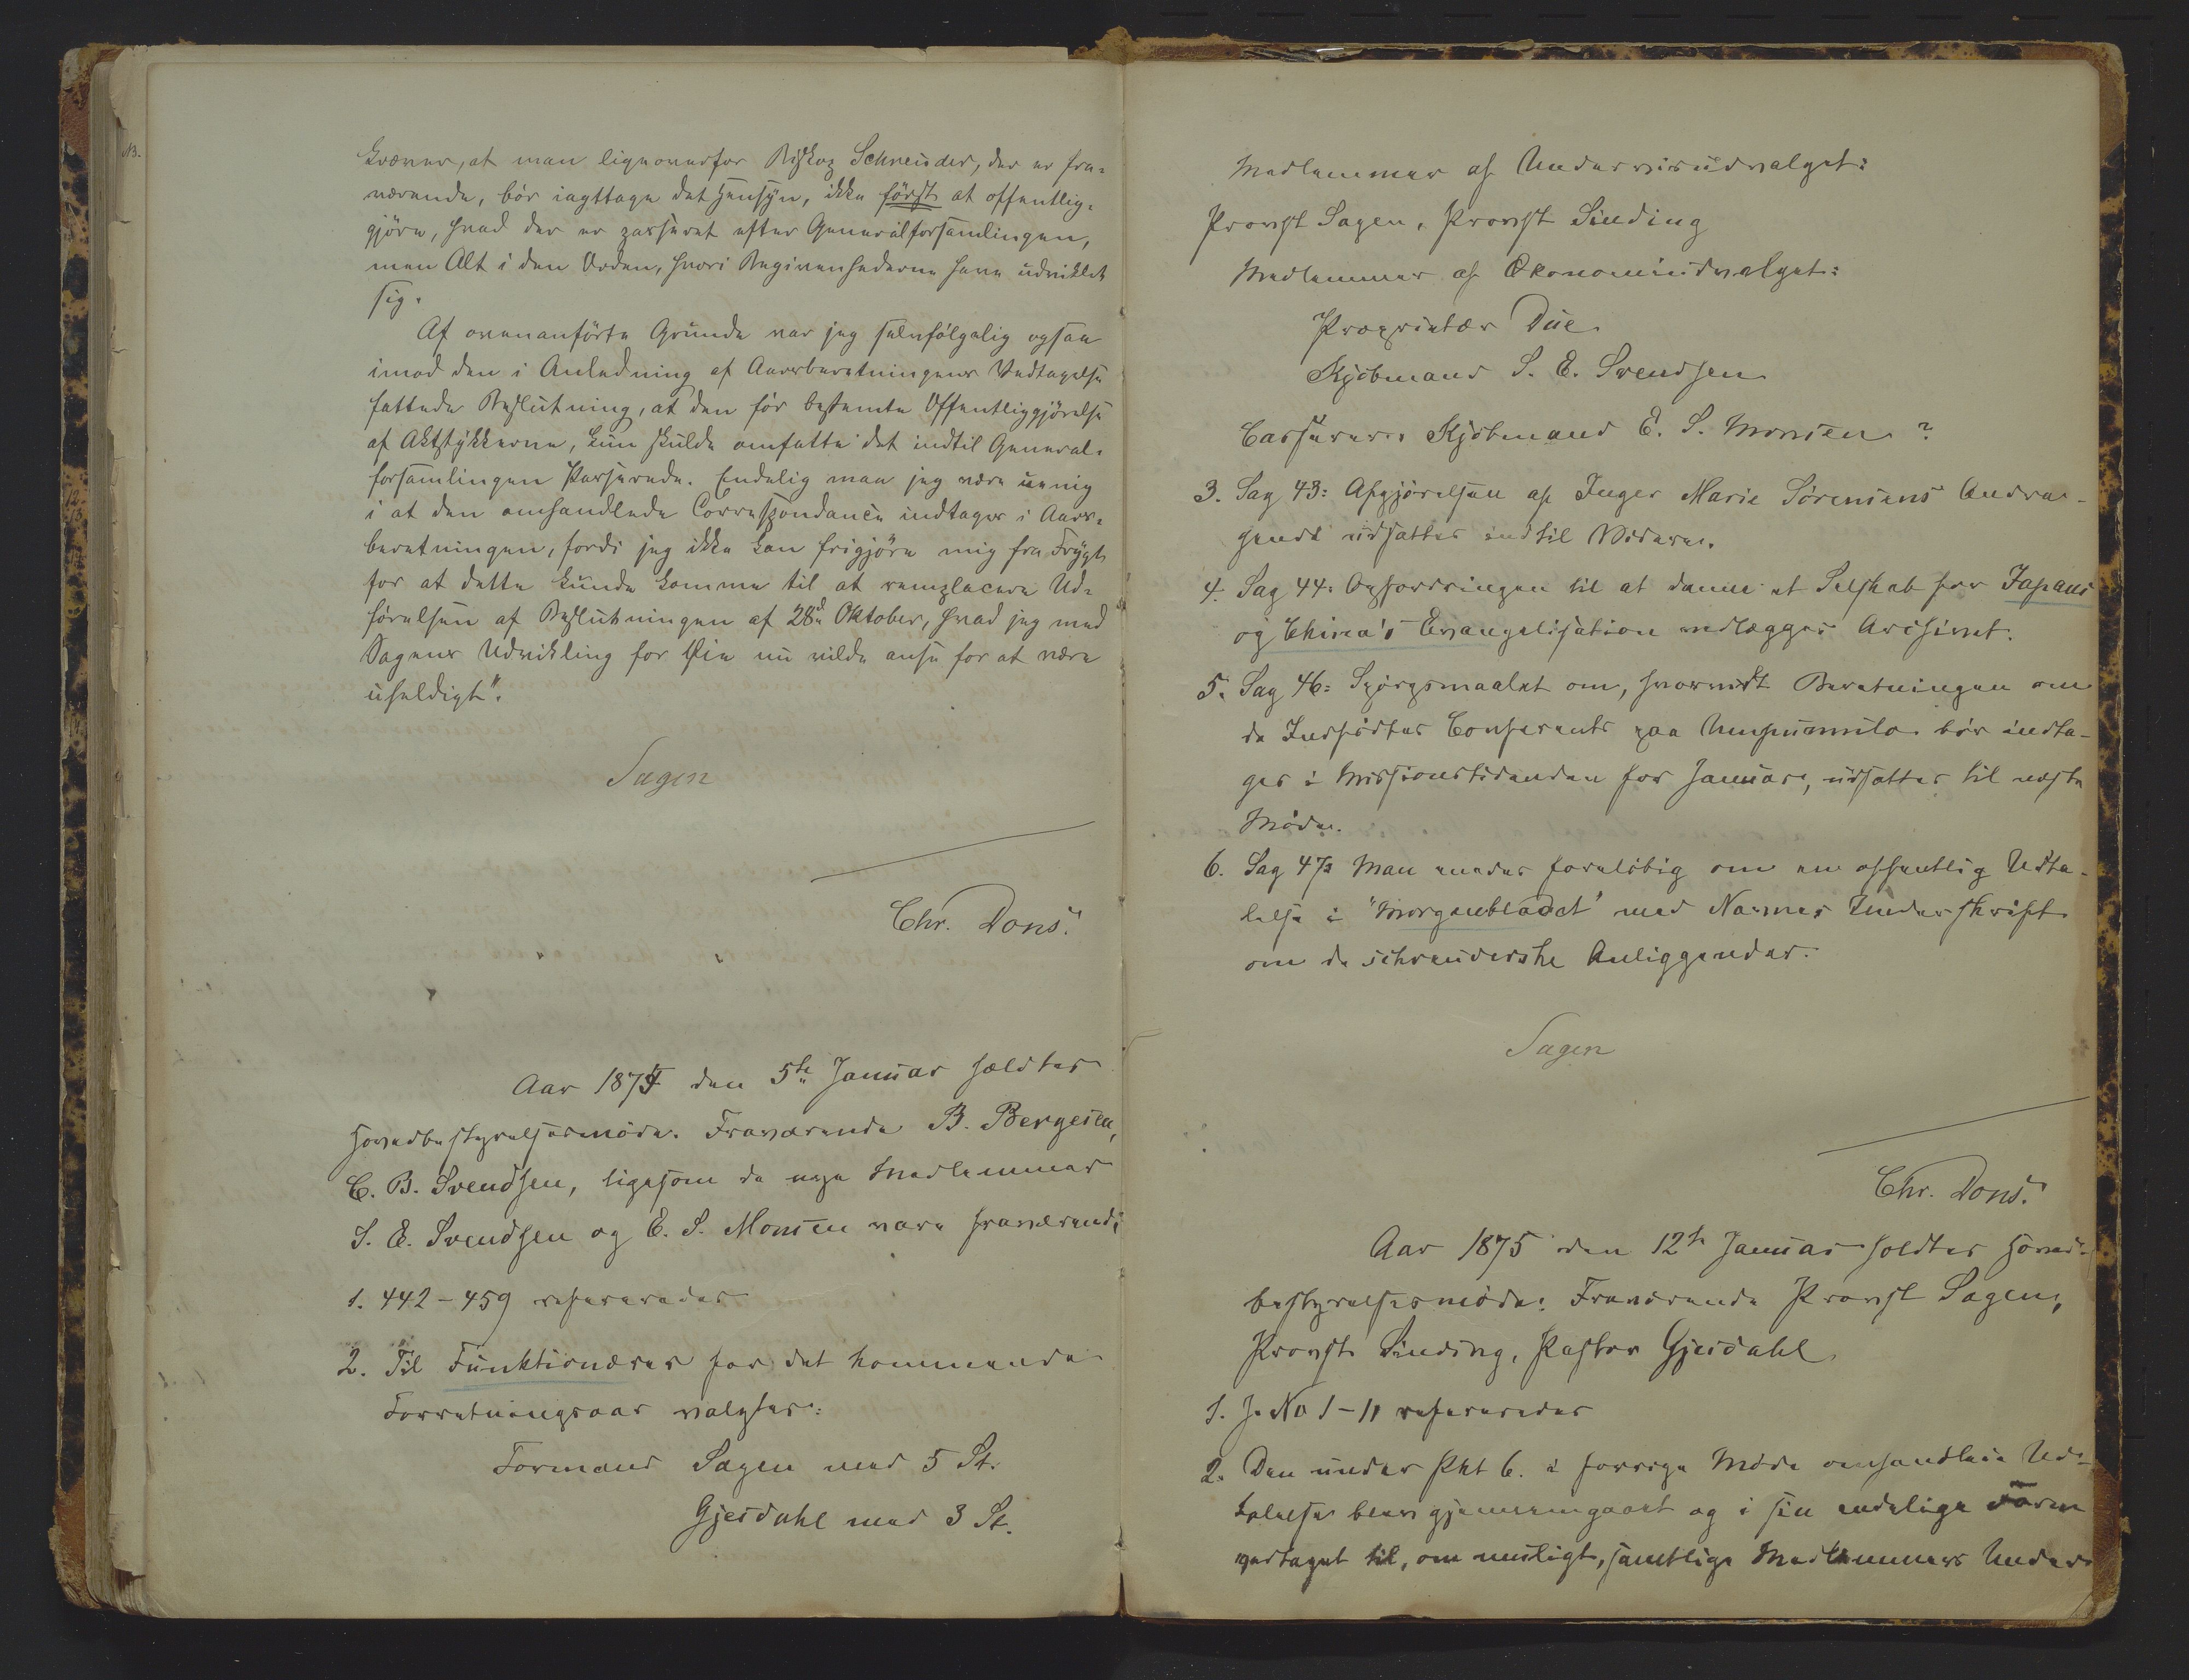 kræver, at man ligeoverfor Biskop Schreuder, der er fra-
værende, bör iagttage det Hensyn, ikke först at offentlig-
gjöre, hvad der er passeret efter Generalforsamlingen,
men Alt i den Orden, hvori Begivenhederne have udviklet
sig.
Af ovenanförte Grunde var jeg selvfölgelig ogsaa
imod den i Anledning af Aarsberetningens Vedtagelse
fattede Beslutning, at den för bestemte Offentliggjörelse
af Aktstykkerne, kun skulde omfatte det indtil General-
forsamlingen Passerede. Endelig maa jeg være uenig
i at den omhandlede Correspondance indtages i Aars-
beretningen, fordi jeg ikke kan frigjöre mig fra Frygt
for at dette kunde komme til at remplacere Ud-
förelsen af Beslutningen af 28de Oktober, hvad jeg med
Sagens Udvikling for Öie nu vilde anse for at være
uheldigt".
Sagen
Chr. Dons.
Aar 1875 den 5te Januar holdtes
Hovedbestyrelsesmöde. Fraværende B. Bergesen,
C. B. Svendsen, ligesom de nye Medlemmer
S. E. Svendsen og E. S. Monsen vare fraværende
1. 442-459 refereredes
2. Til Funktionærer for det kommende
Forretningsaar valgtes:
Formand Sagen med 5 St.
Gjesdahl med 3 St.
Medlemmer af Undervisudvalget:
Provst Sagen, Provst Sinding
Medlemmer af Økonomiudvalget:
Proprietær Due
Kjöbmand S. E. Svendsen
Casserer: Kjöbmand E. S. Monsen ?
3. Sag 43: Afgjörelsen af Inger Marie Sörensens Andra-
gende udsættes indtil Videre.
4. Sag 44: Opfordringen til at danne et Selskab for Japans
og China's Evangelisation vedlægges Archivet.
5. Sag 46: Spörgsmaalet om, hvorvidt Beretningen om
de Indfödtes Conferents paa Umpumulo bör indta-
ges i Missionstidenden for Januar, udsættes til næste
Möde.
6. Sag 47: Man enedes forelöbig om en offentlig Udta-
lelse i "Morgenbladet" med Navnes Underskrift
om de schreuderske Anliggender.
Sagen
Chr. Dons.
Aar 1875 den 12te Januar holdtes Hoved-
bestyrelsesmöde: Fraværende Provst Sagen,
Provst Sinding, Pastor Gjesdahl
1. J. No 1-11 refereredes
2. Den under Pkt 6. i forrige Möde omhandlede Ud-
talelse blev gjennemgaaet og i sin endelige Form
vedtaget til, om muligt, samtlige Medlemmers Under-